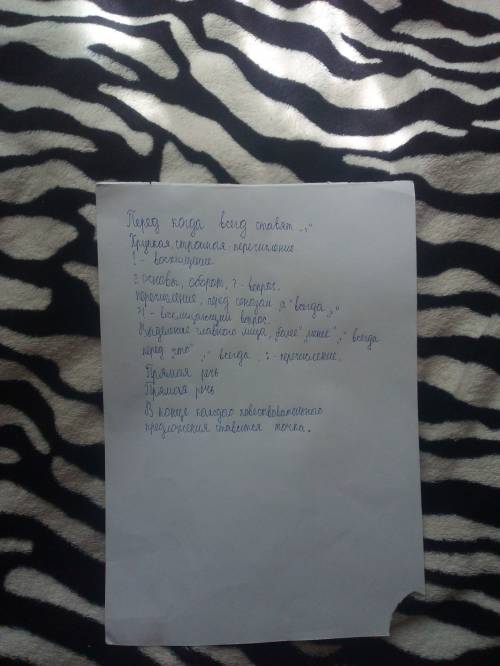 Перед когда всегд ставят „,"
Хрупкая, стройная - перечисление
! - восхищение.
2 основы, оборот, ? - вопрос.
перечисление, перед союзом а "всегда „,"
?! - восклицающий вопрос.
главного лица, „более", „менее" „," всегда
перед „это" „," всегда , : - перечисление.
Прямая речь
Прямая речь
В конце каждого повествовательного
предложения ставится точка.